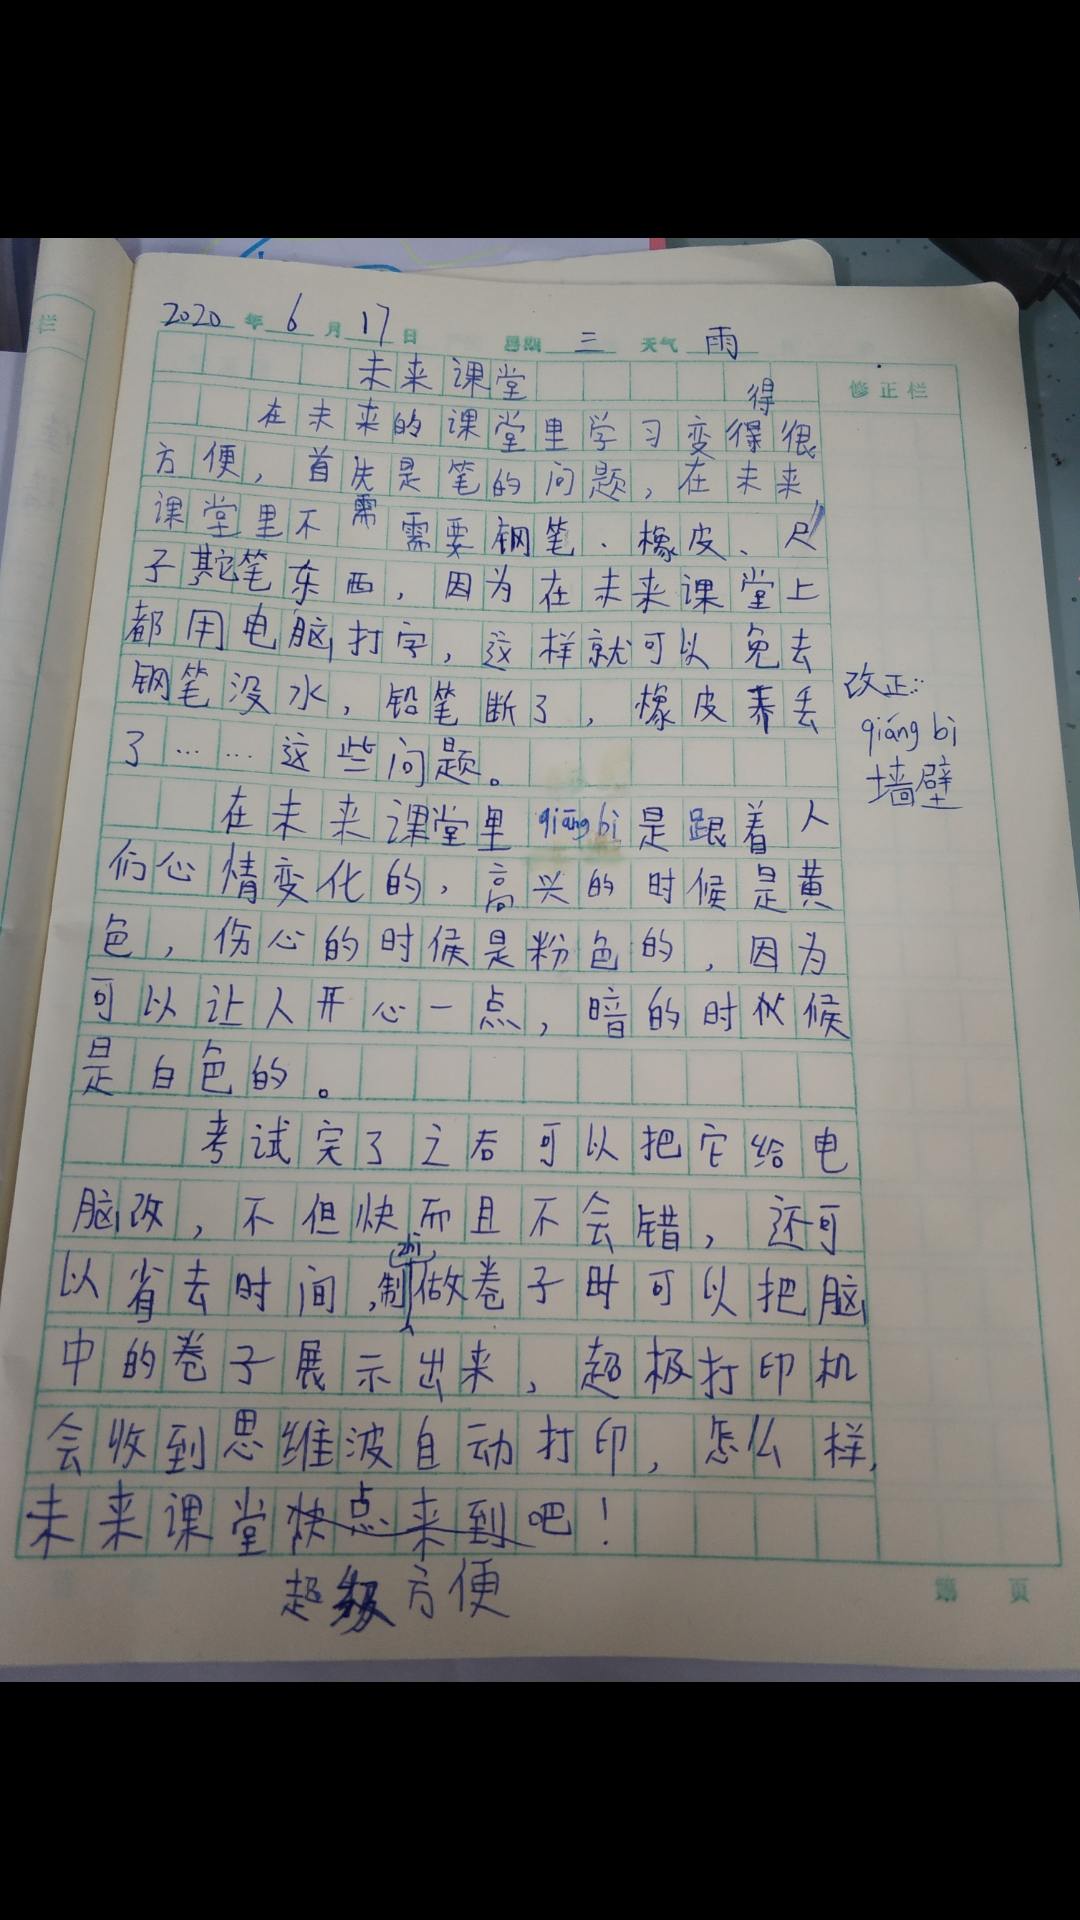 2020年6月17日 星期三 天气雨
未来课堂
修正栏
得
在未来的课堂里学习变得很
方便，首先是笔的问题，在未来
课堂里不需需要钢笔、橡皮、尺
子笔东西，因为在未来课堂上
都用电脑打字，这样就可以免去
钢笔没水，铅笔断了，橡皮弄丢
了……这些问题。
改正：
qiáng bì
墙壁
在未来课堂里qiāng bì是跟着人
们心情变化的，高兴的时候是黄
色，伤心的时候是粉色的，因为
可以让人开心一点，暗的时候
是白色的。
考试完了之后可以把它给电
脑改，不但快而且不会错，还可
zhì
以省去时间，制做卷子时可以把脑
中的卷子展示出来，超极打印机
会收到思维波自动打印，怎么样，
未来课堂快点来到吧！
超级方便
第 页
栏